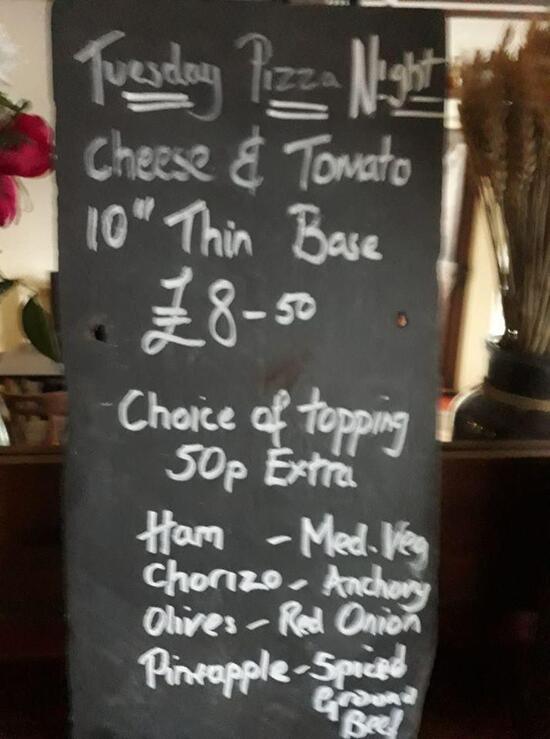 Tuesday Pizza Night
Cheese & Tomato
10" Thin Base
£8-50
Choice of topping
50p Extra
Ham - Med. Veg
Chorizo - Anchovy
Olives - Red Onion
Pineapple - Spiced
Ground
Beef